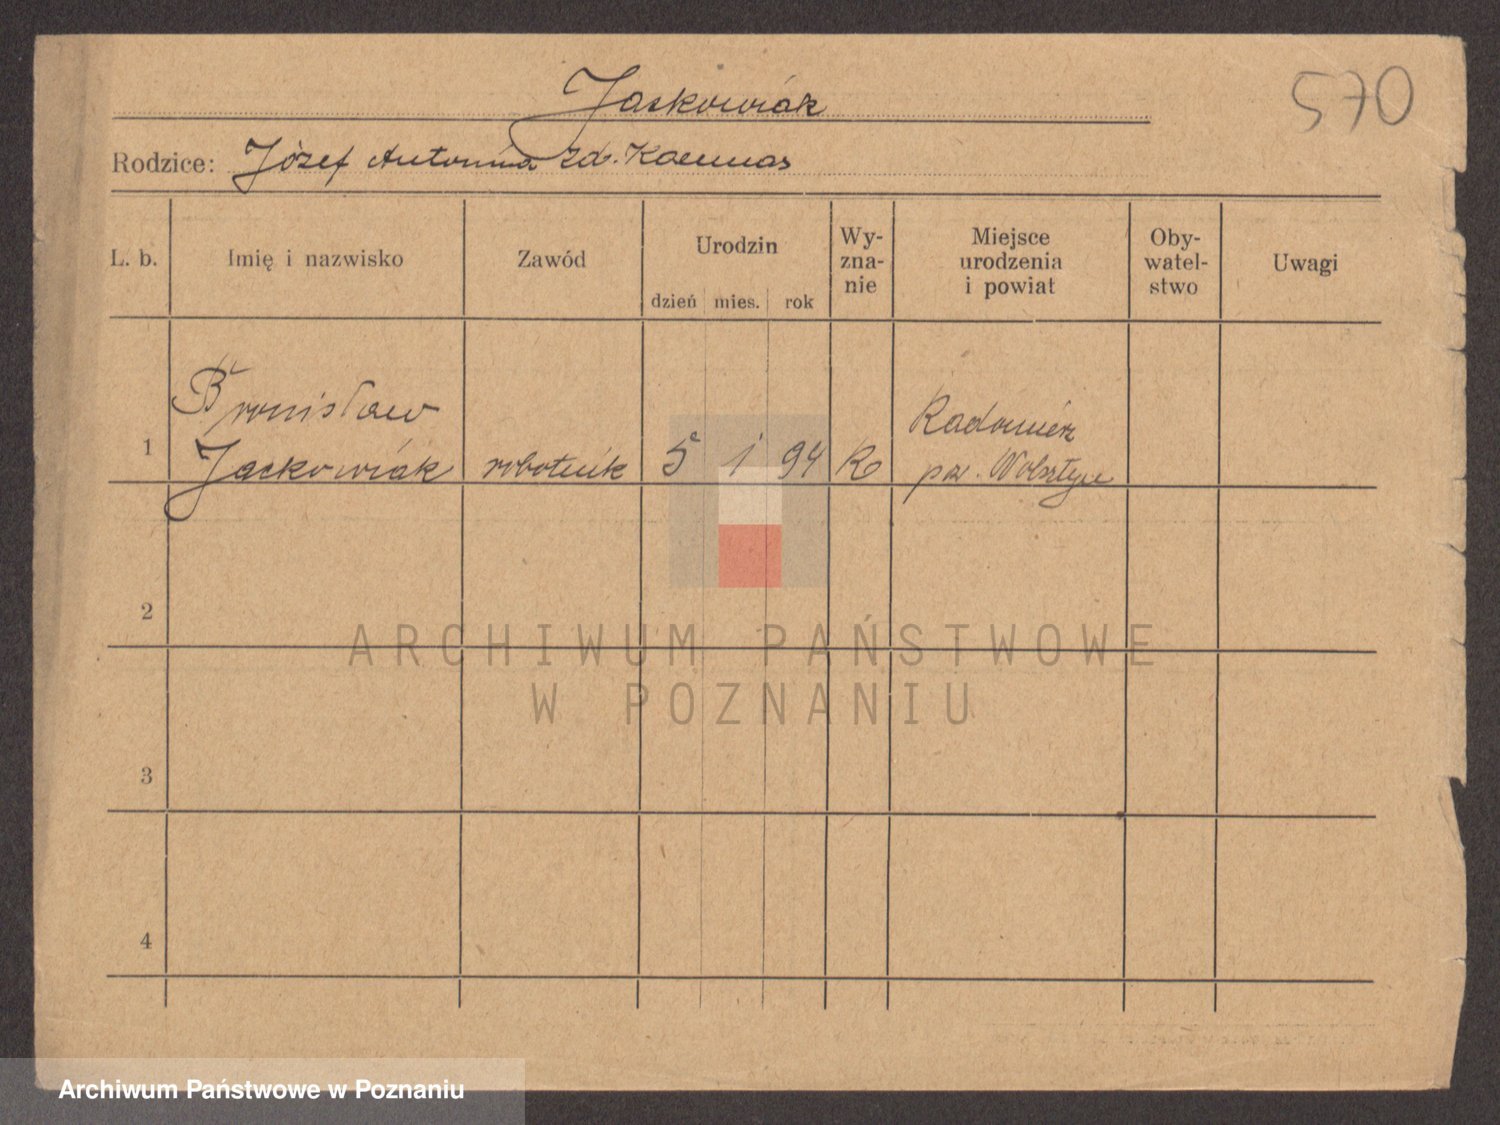 Jaskowiak
570
Rodzice: Józef Antonina zd.
L. b. Imię i nazwisko Zawód Urodzin dzień mies. rok Wy-zna-nie Miejsce urodzenia i powiat Oby-watel-stwo Uwagi
Bronisław
1 Jackowiak robotnik 5 1 94 Rk Radomierz
pow. Wolsztyn
2
ARCHIWUM PAŃSTWOWE
W POZNANIU
3
4
Archiwum Państwowe w Poznaniu